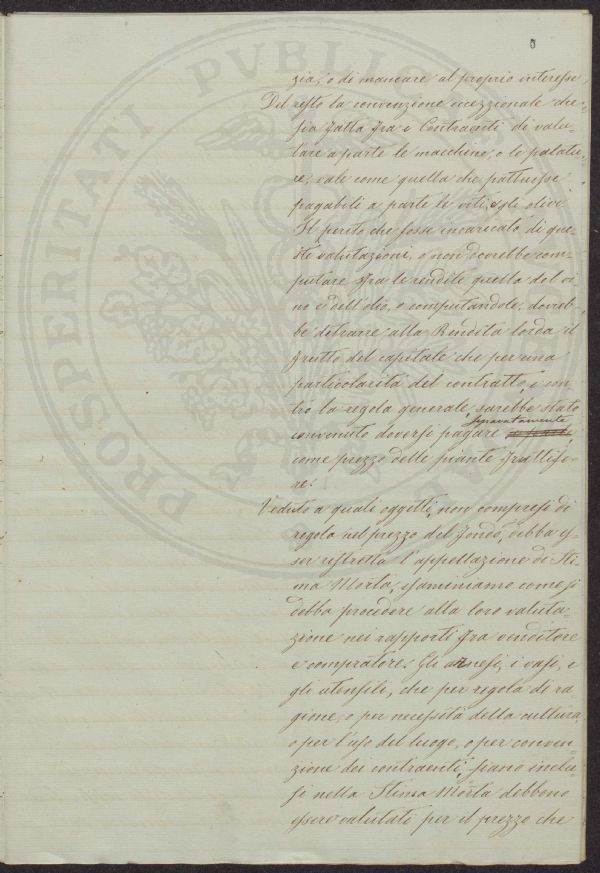 zia, o di mancare al proprio interesse.
Del resto la convenzione eccezionale che
sia fatta fra i Contraenti di valu-
tare a parte le macchine, o le palatu-
re, vale come quella che pattuisse
pagabili a parte le viti, e gli olivi.
Il perito che fosse incaricato di que-
ste valutazioni, o non dovrebbe com-
putare fra le rendite quella del vi
no e dell'olio, o computandole, dovreb-
be detrarre alla Rendita lorda il
frutto del capitale che per una
particolarità del contratto, e con
tro la regola generale sarebbe stato
separatamente
convenuto doversi pagare
come prezzo delle piante fruttife-
re.
Veduto a quali oggetti, non compresi di
regola nel prezzo del fondo, debba es
ser ristretta l'appellazione di Sti
ma Morta, esaminiamo come si
debba procedere alla loro valuta-
zione nei rapporti fra venditore
e compratore. Gli arnesi, i vasi, e
gli utensili, che per regola di ra-
gione, o per necessità della cultura,
o per l'uso del luogo, o per conven-
zione dei contraenti, siano inclu-
si nella Stima Morta debbono
essere valutati per il prezzo che
PROSPERITATI PVBLIC